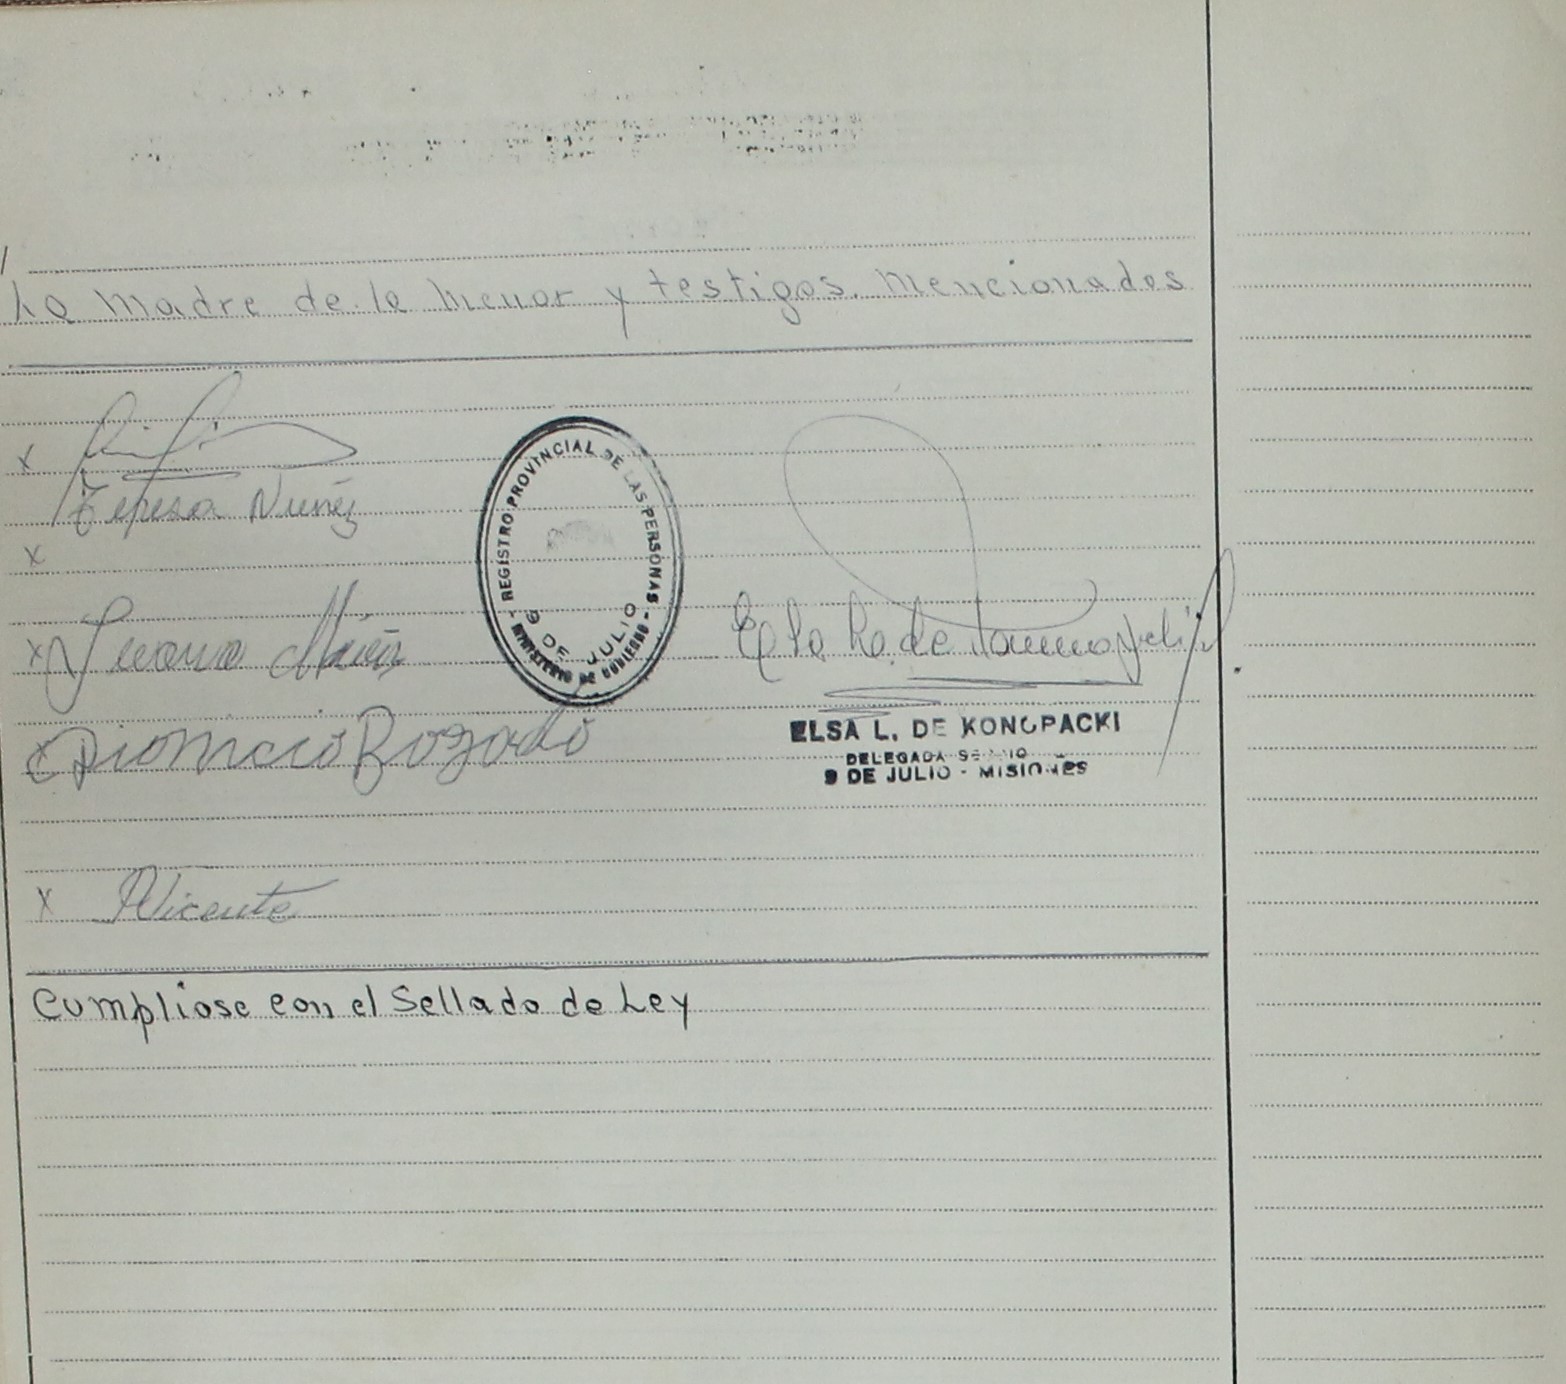 La Madre de la Menor y testigos. Mencionados
Teresa Nuñez
REGISTRO PROVINCIAL DE LAS PERSONAS - MINISTERIO DE GOBIERNO -
9 DE JULIO
Juana
Dionicio Rozado
ELSA L. DE KONOPACKI
DELEGADA
9 DE JULIO - MISIONES
x Vicente
Cumpliose con el Sellado de Ley